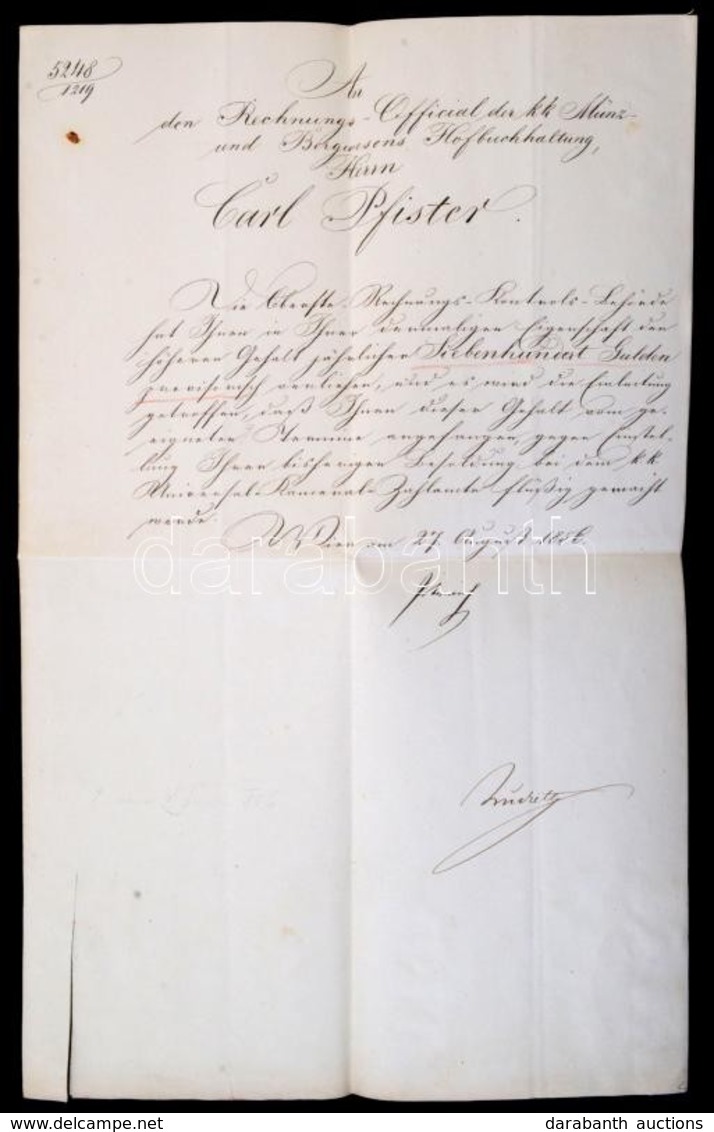 5248
1219
An
den Rechnungs-Official der kk Münz-
und Bergwesens Hofbuchhaltung,
Herrn
Carl Pfister.
Die Oberste Rechnungs-Kontrols-Behörde
hat Ihnen in Ihrer dermaligen Eigenschaft den
höheren Gehalt jährlicher Siebenhundert Gulden
provisorisch verliehen, und es wird die Einleitung
getroffen, daß Ihnen dieser Gehalt vom ge-
eigneten Termine angefangen, gegen Einstel-
lung Ihrer bisherigen Besoldung bei dem k.k.
Universal-Kameral-Zahlamte flüßig gemacht
werde.
Wien am 27. August 1856.
darabanth
HosszuLepes.com
darabanth auctions